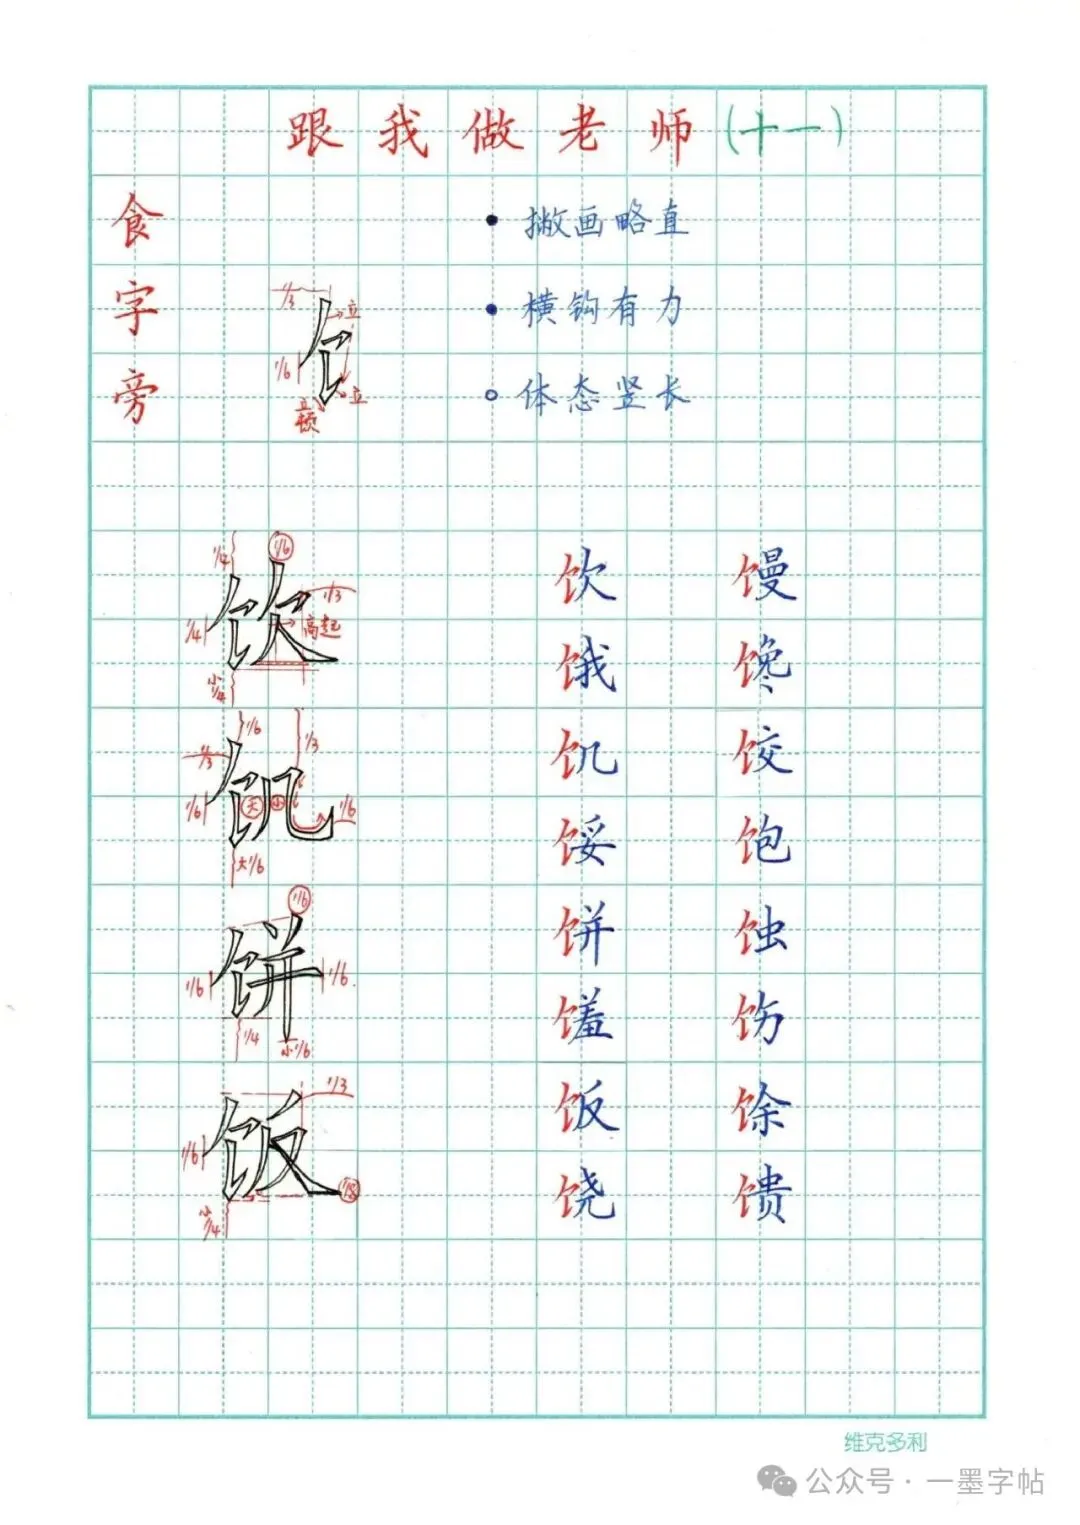 跟我做老师(十一)
食字旁
• 撇画略直
• 横钩有力
• 体态竖长
1/3
立
饣
1/6
立
立顿
1/4
1/6
饮
1/3
高起
1/4
小1/4
饮 馒
饿 馋
1/6
1/3
1/3
饥
1/6
大
小
1/6
大1/6
饥 饺
馁 饱
1/6
饼
1/6
1/6
1/4
小1/6
饼 蚀
馐 饬
1/3
饭
1/6
1/8
小1/4
饭 馀
饶 馈
维克多利
公众号·一墨字帖